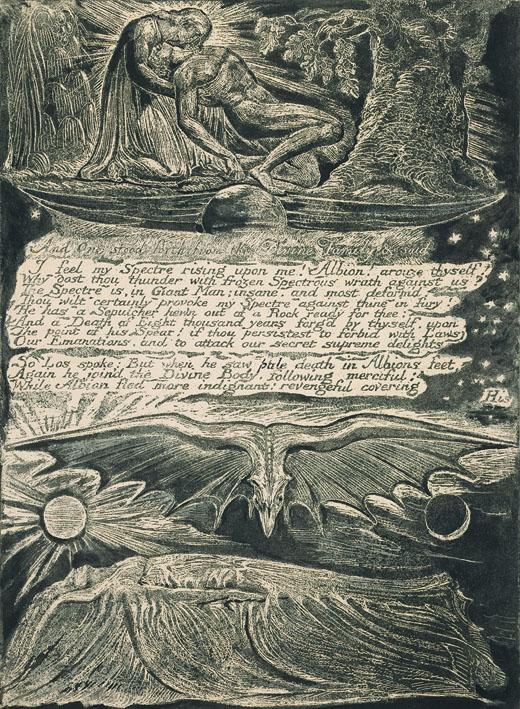 And One stood forth from the Divine Family & said
I feel my Spectre rising upon me! Albion! arouze thyself!
Why dost thou thunder with frozen Spectrous wrath against us
The Spectre is, in Giant Man; insane, and most deform'd
Thou wilt certainly provoke my Spectre against thine in fury!
He has a Sepulcher hewn out of a Rock ready for thee:
And a Death of Eight thousand years forg'd by thyself, upon
The point of his Spear! if thou persistest to forbid with Laws
Our Emanations, and to attack our secret supreme delights
So Los spoke: But when he saw pale death in Albions feet,
Again he join'd the Divine Body, following merciful;
While Albion fled more indignant! revengeful covering
His